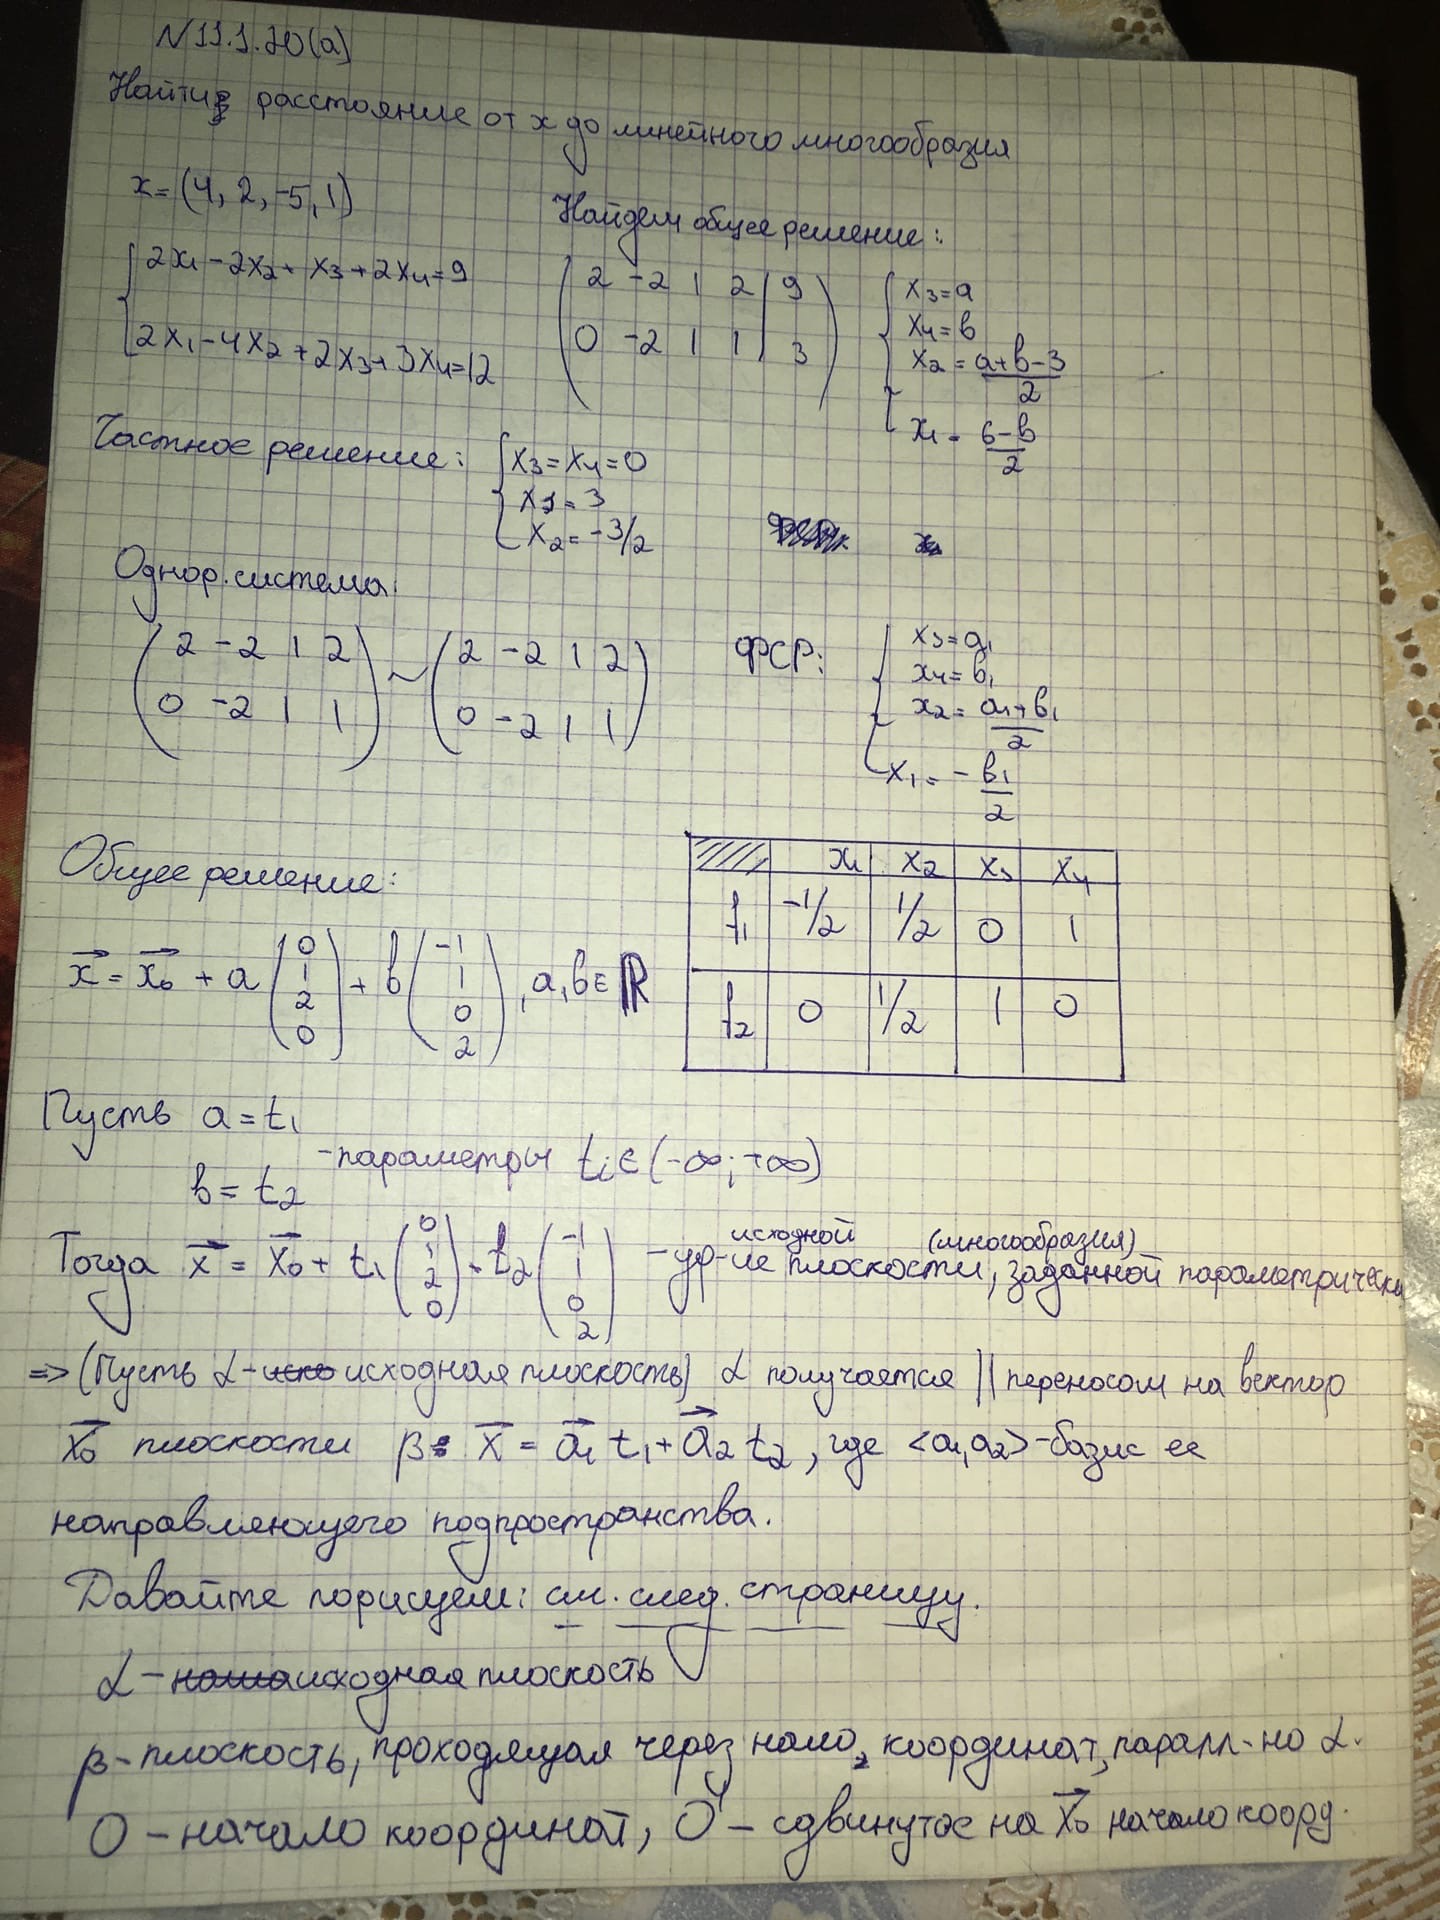 N 11.1.20(а)
Найти расстояние от x до линейного многообразия
x=(4, 2, -5, 1)
Найдем общее решение:
{ 2x₁ - 2x₂ + x₃ + 2x₄ = 9
2x₁ - 4x₂ + 2x₃ + 3x₄ = 12
( 2 -2 1 2 | 9
0 -2 1 1 | 3 )
{ x₃ = a
x₄ = b
x₂ = (a+b-3)/2
x₁ = (6-b)/2
Частное решение: { x₃ = x₄ = 0
x₁ = 3
x₂ = -3/2
Однор. система:
( 2 -2 1 2
0 -2 1 1 ) ~ ( 2 -2 1 2
0 -2 1 1 )
ФСР: { x₃ = a₁
x₄ = b₁
x₂ = (a₁+b₁)/2
x₁ = - b₁/2
x₁ x₂ x₃ x₄
f₁ -1/2 1/2 0 1
f₂ 0 1/2 1 0
Общее решение:
x⃗ = x⃗₀ + a (0 1 2 0) + b (-1 1 0 2), a, b ∈ ℝ
Пусть a = t₁
b = t₂
- параметры tᵢ ∈ (-∞; +∞)
Тогда x⃗ = x⃗₀ + t₁ (0 1 2 0) + t₂ (-1 1 0 2) - ур-ие исходной плоскости (многообразия), заданной параметрически
=> (Пусть α - исходная плоскость) α получается || переносом на вектор
x⃗₀ плоскости β: x⃗ = a⃗₁ t₁ + a⃗₂ t₂, где <a₁, a₂> - базис ее
направляющего подпространства.
Давайте порисуем: см. след. страницу.
α - исходная плоскость
β - плоскость, проходящая через начало координат, паралл-но α.
O - начало координат, O' - сдвинутое на x⃗₀ начало коорд.